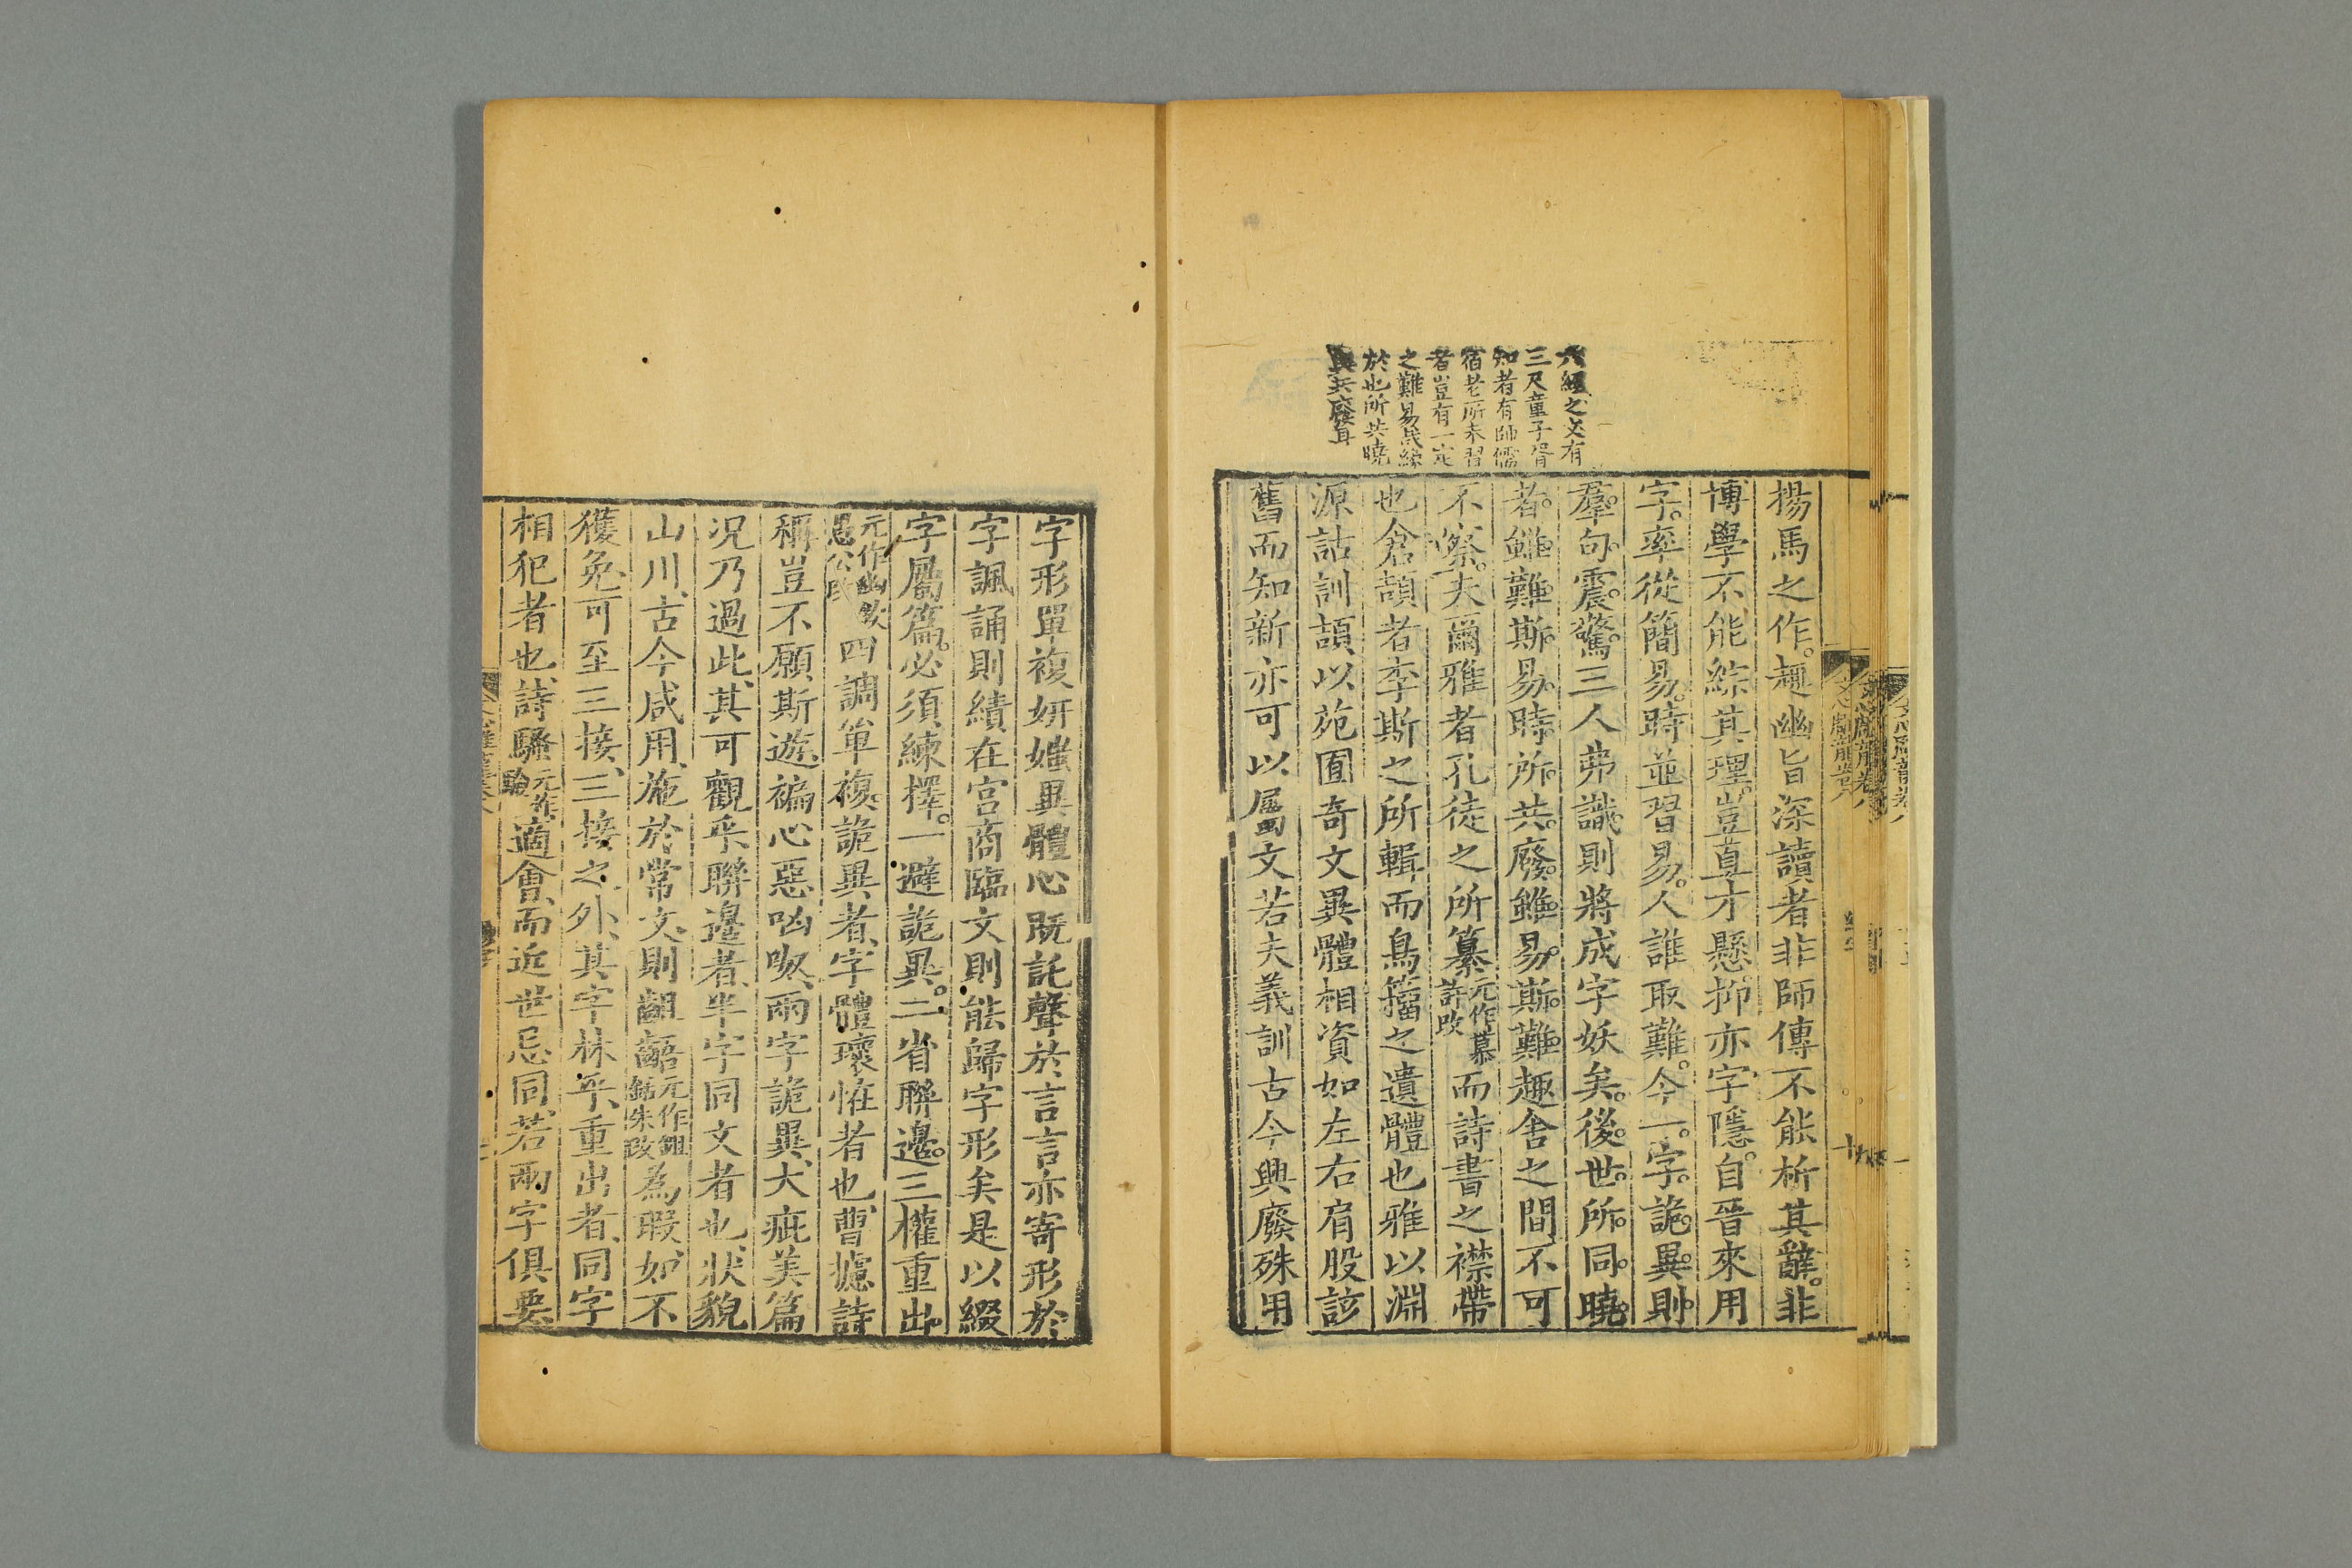 六經之文有
三尺童子胥
知者有師儒
宿老所未習
者豈有一定
之難易哉緣
於世所共曉
與共廢耳
揚馬之作。趣幽旨深讀者非師傳不能析其辭。非
博學不能綜其理。豈直才懸。抑亦字隱。自晉來用
字。率從簡易。時並習易。人誰取難。今一。字。詭。異。則。
羣。句。震。驚。三人弗識。則將成字妖矣。後。世。所。同。曉。
者。雖。難。斯。易。時。所。共。廢。雖。易。斯。難。趣舍之間。不可
不察。夫爾雅者孔徒之所纂元作慕許改而詩書之襟帶
也倉頡者李斯之所輯而鳥籀之遺體也雅以淵
源詁訓頡以苑囿奇文異體相資如左右肩股該
舊而知新亦可以屬文若夫義訓古今興廢殊用
字形單複妍媸異體心既託聲於言言亦寄形於
字諷誦則績在宮商臨文則能歸字形矣是以綴
字屬篇。必須練擇。一避詭異。二省聯邊。三權重出。
四調單複、詭異者、字體瓌怪者也、曹攄詩
稱豈不願斯遊、褊心惡㕼呶、兩字詭異、大疵美篇
况乃過此、其可觀乎、聯邊者、半字同文者也、狀貌
山川、古今咸用、施於常文、則齟齬元作鉏鋙朱改為瑕、如不
獲免、可至三接、三接之外、其字林乎、重出者、同字
相犯者也、詩騷元作驗適會、而近世忌同、若兩字俱要、
文心雕龍卷八